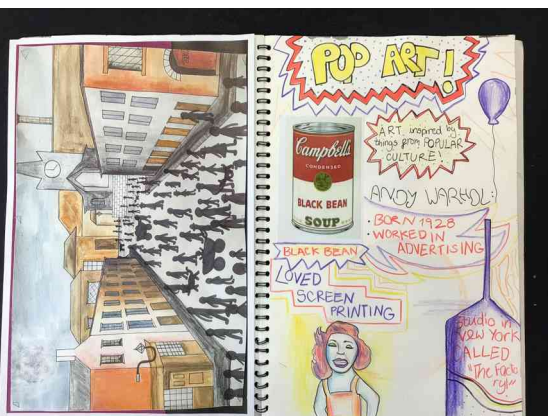 POP ART!
ART inspired by
things from POPULAR
CULTURE!
Campbell's
CONDENSED
BLACK BEAN
SOUP
ANDY WARHOL:
• BORN 1928
• WORKED IN
ADVERTISING
BLACK BEAN
LOVED
SCREEN
PRINTING
Studio in
New York
ALLED
"The Facto
ry!"